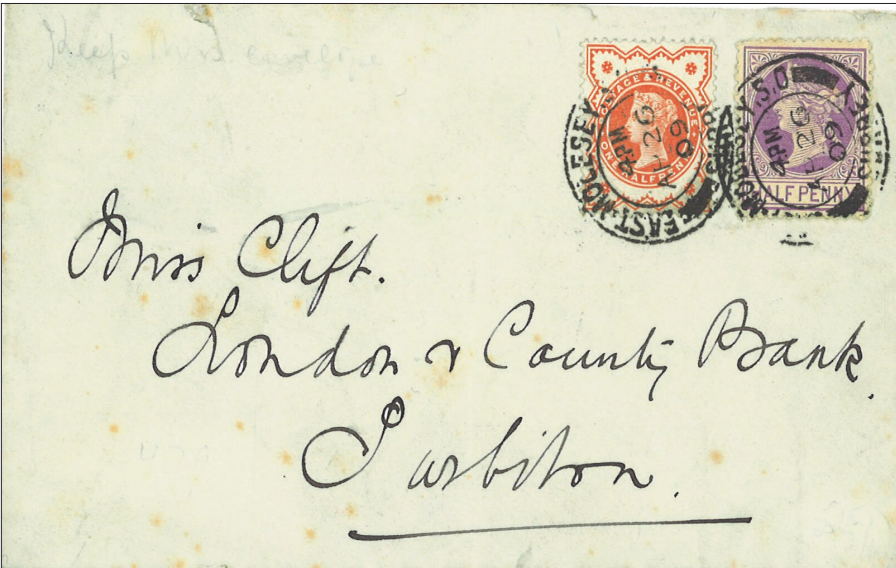 Keep this envelope
POSTAGE & REVENUE
ONE HALFPENNY
EAST-MOLESEY.S.O
SURREY
4 PM
26
09
HALFPENNY
MOLESEY.S.O
SURREY
4 PM
26
09
Miss Clift.
London & County Bank.
Surbiton.